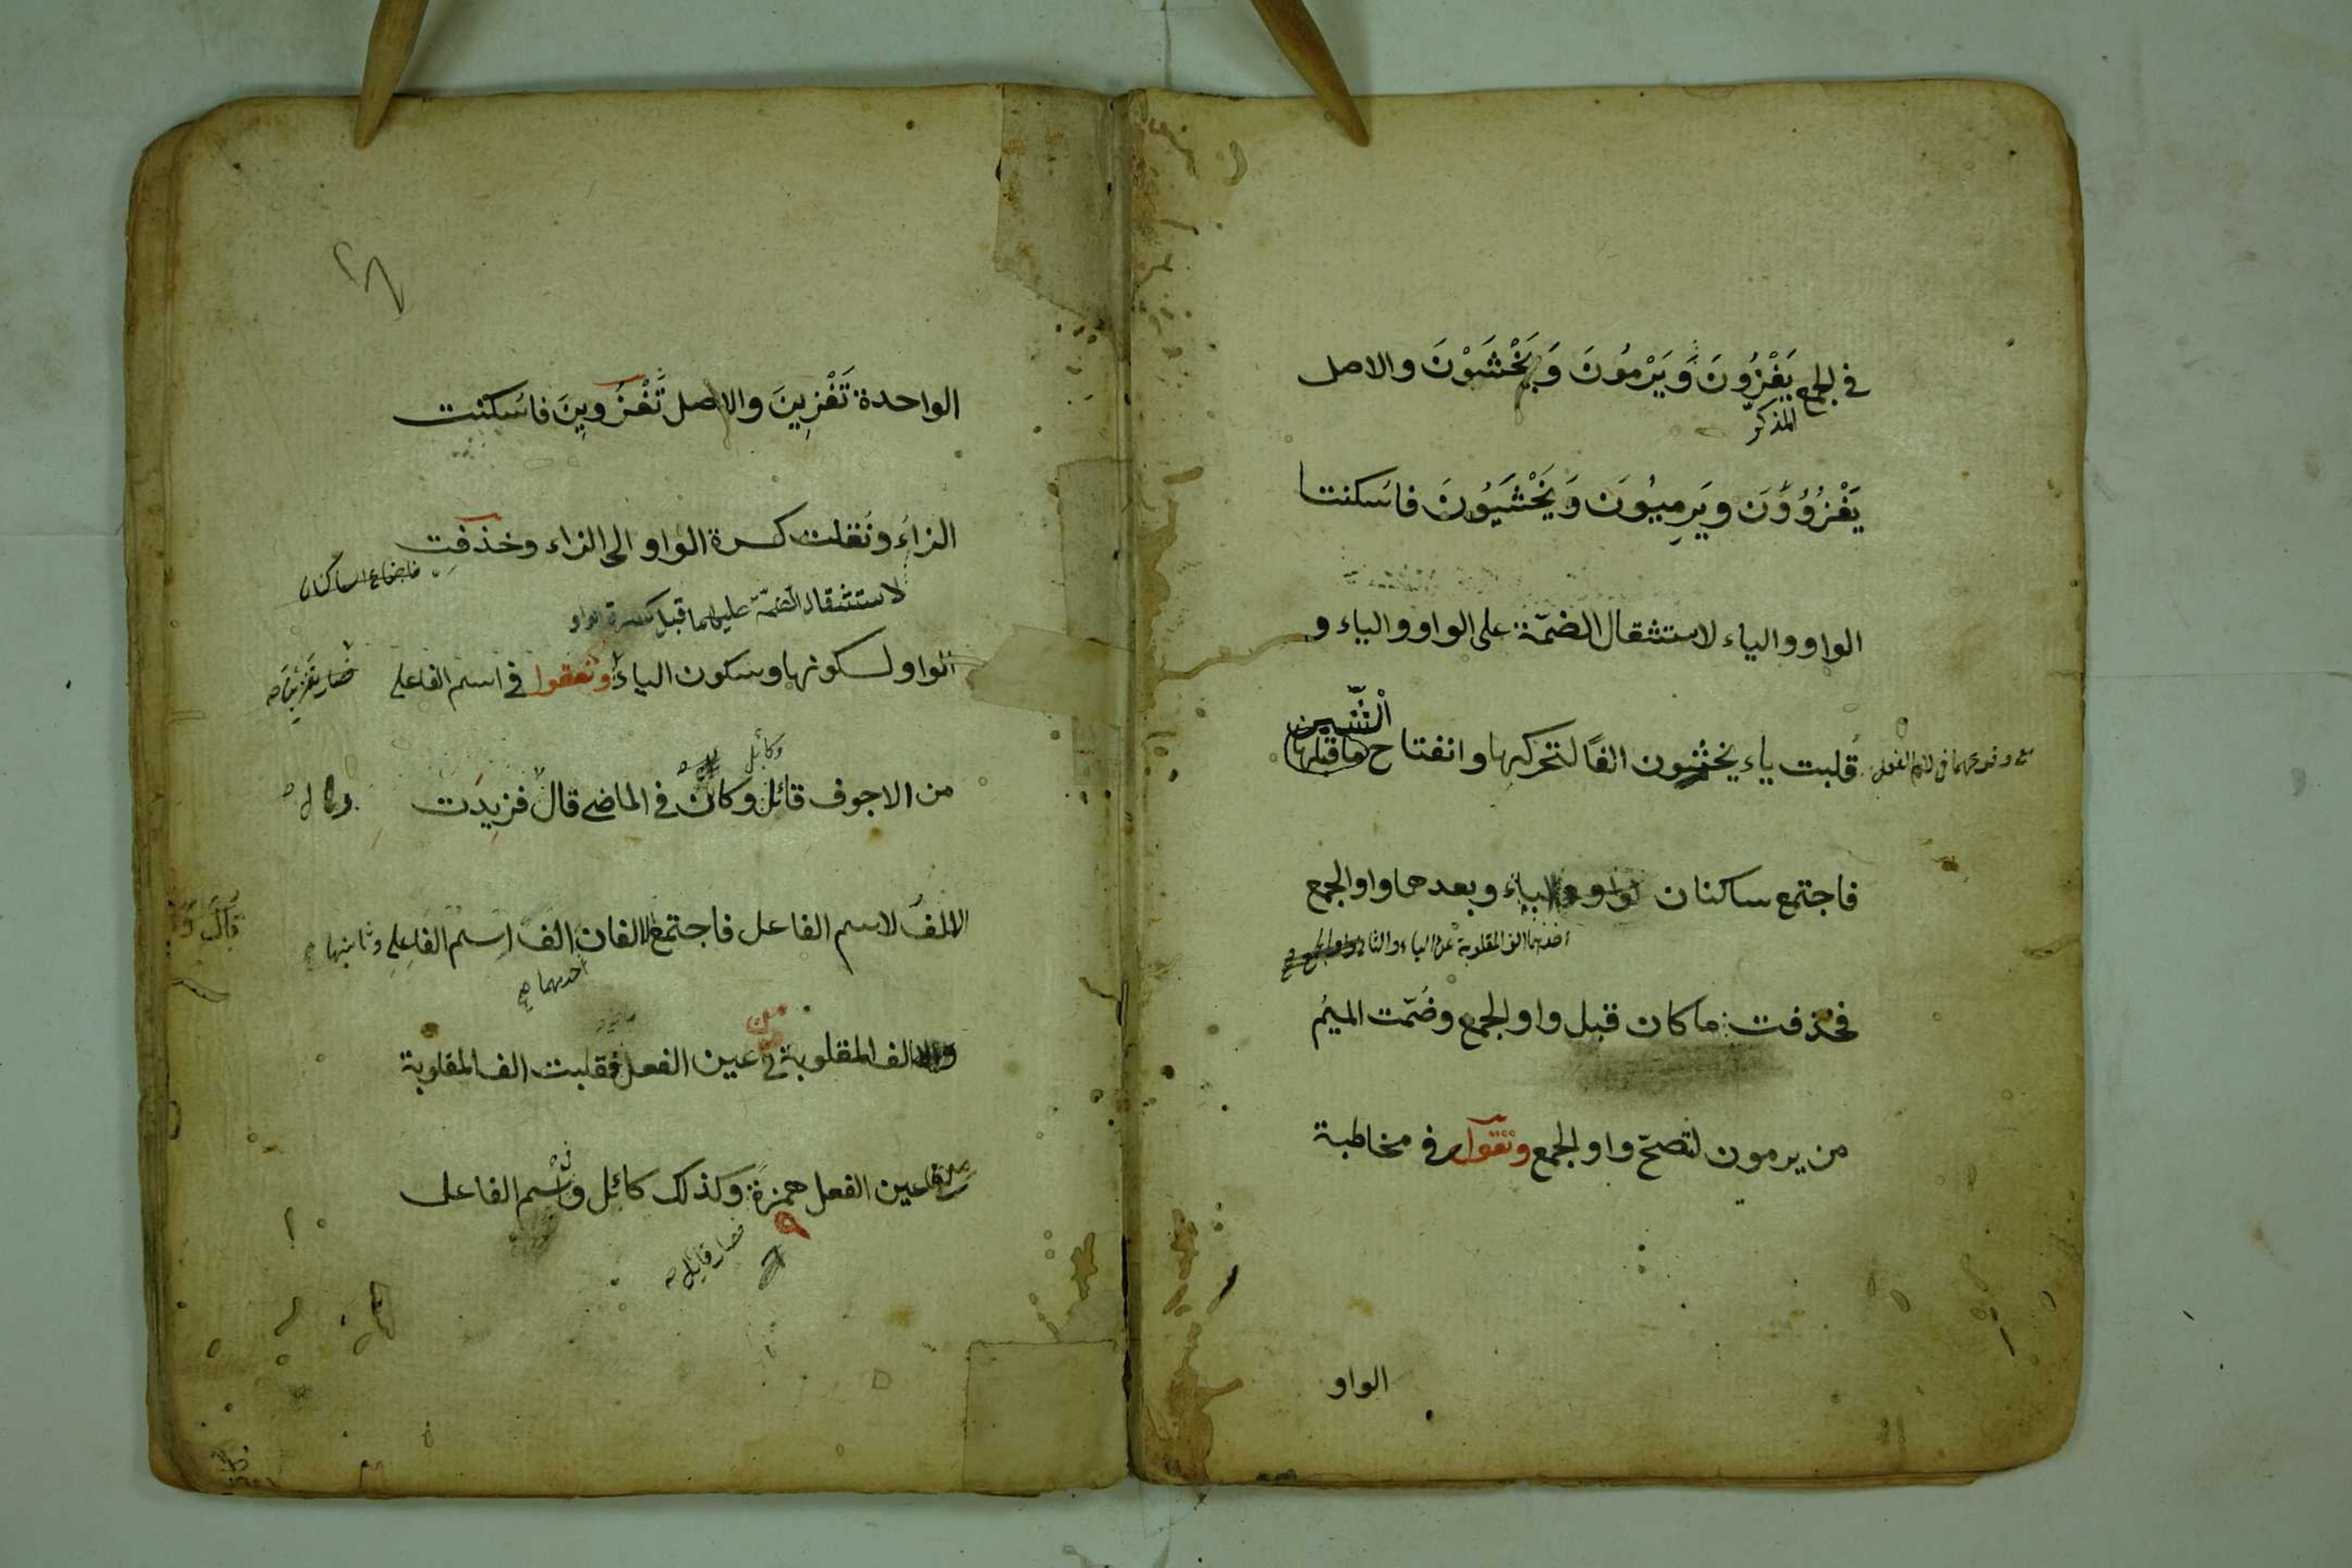 في الجمع يَغْزُونَ وَيَرْمُونَ وَيَخْشَوْنَ والاصل
المذكّر
يَغْزُوُونَ ويَرمِيُونَ وَيَخْشَيُونَ فاسكنتا
الواو والياء لاستثقال الضمّة على الواو والياء و
الشين
قُلبت ياء يخشيون الفًا لتحركها وانفتاح ماقبلها
فاجتمع ساكنان الواو والياء وبعدهما واو الجمع
فحذفت ما كان قبل واو الجمع وضُمّت الميمُ
من يرمون لتصحّ واو الجمع وتقول في مخاطبة
الواو
الواحدة تَغْزِينَ والاصل تَغْزُوِينَ فاسكنت
الزاءَ ونقلت كسرة الواو الى الزاء وحذفت
لاستثقال الضمّة عليها قبل كسرة الواو
الواو لسكونها وسكون الياء وتقول في اسم الفاعل
وكائل
من الاجوف قائل وكان في الماضي قال فزيدَت
الالفُ لاسم الفاعل فاجتمع الالفان الف اسم الفاعل
احديهما
من
والالف المقلوبة في عين الفعل فقلبت الف المقلوبة
عين الفعل همزةً وكذلك كائل واسم الفاعل
فصار قايل